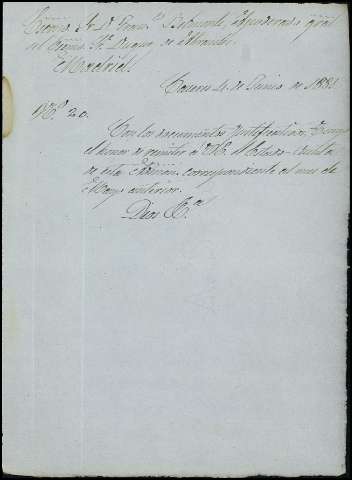 Excmo. Sr. D. Fran.co Belmonte Apoderado gral
del Excmo. Sr. Duque de Abrantes.
Madrid.
Caceres 4 de Junio de 188
N.º 20.
Con los documentos justificativos, tengo
el honor de remitir a V.E. el Estado-Cuenta
de esta Admon. correspondiente al mes de
Mayo anterior.
Dios &.a